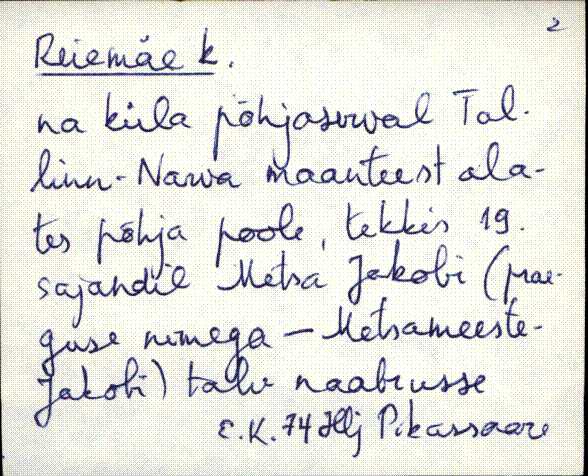 2
Reiemäe k.
na küla põhjaserval Tal-
linn-Narva maanteest ala-
tes põhja poole, tekkis 19.
sajandil Metsa Jakobi (prae-
guse nimega - Metsameeste-
Jakobi) talu naabrusse
E.K. 74 Hlj Pikassaare